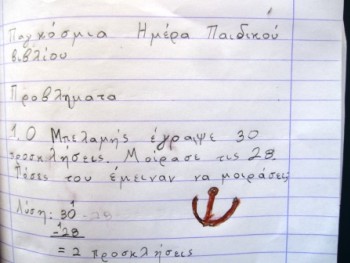 Παγκόσμια Ημέρα Παιδικού
βιβλίου
Προβλήματα
1. Ο Μπελαμής έγραψε 30
προσκλήσεις. Μοίρασε τις 28.
Πόσες του έμειναν να μοιράσει;
Λύση: 30 - 28
-28
= 2 προσκλήσεις